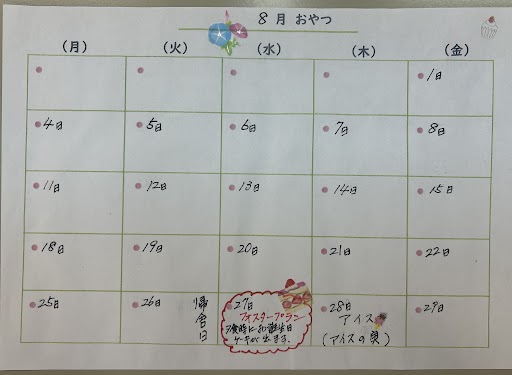 8月 おやつ
(月) (火) (水) (木) (金)
1日
4日 5日 6日 7日 8日
11日 12日 13日 14日 15日
18日 19日 20日 21日 22日
25日 26日 27日 28日 29日
帰舎日
フォスタープラン
夕食時にお誕生日
ケーキが出ます。
アイス
(アイスの日)